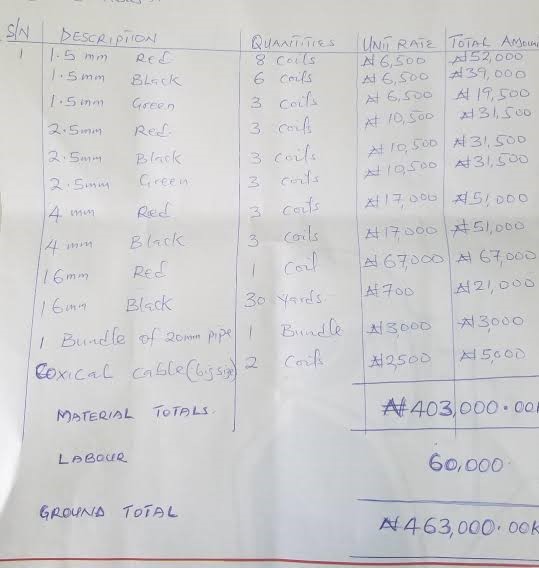 S/N DESCRIPTION QUANTITIES UNIT RATE TOTAL Amoun
1 1.5 mm Red 8 coils ₦6,500 ₦52,000
1.5 mm Black 6 coils ₦6,500 ₦39,000
1.5mm Green 3 coils ₦6,500 ₦19,500
2.5mm Red 3 coils ₦10,500 ₦31,500
2.5mm Black 3 coils ₦10,500 ₦31,500
2.5mm Green 3 coils ₦10,500 ₦31,500
4 mm Red 3 coils ₦17,000 ₦51,000
4 mm Black 3 coils ₦17,000 ₦51,000
16mm Red 1 coil ₦67,000 ₦67,000
16mm Black 30 yards ₦700 ₦21,000
1 Bundle of 20mm pipe 1 Bundle ₦3,000 ₦3,000
Coxical cable (big size) 2 Coils ₦2,500 ₦5,000
MATERIAL TOTALS. ₦403,000.00
LABOUR 60,000.
GROUND TOTAL ₦463,000.00K